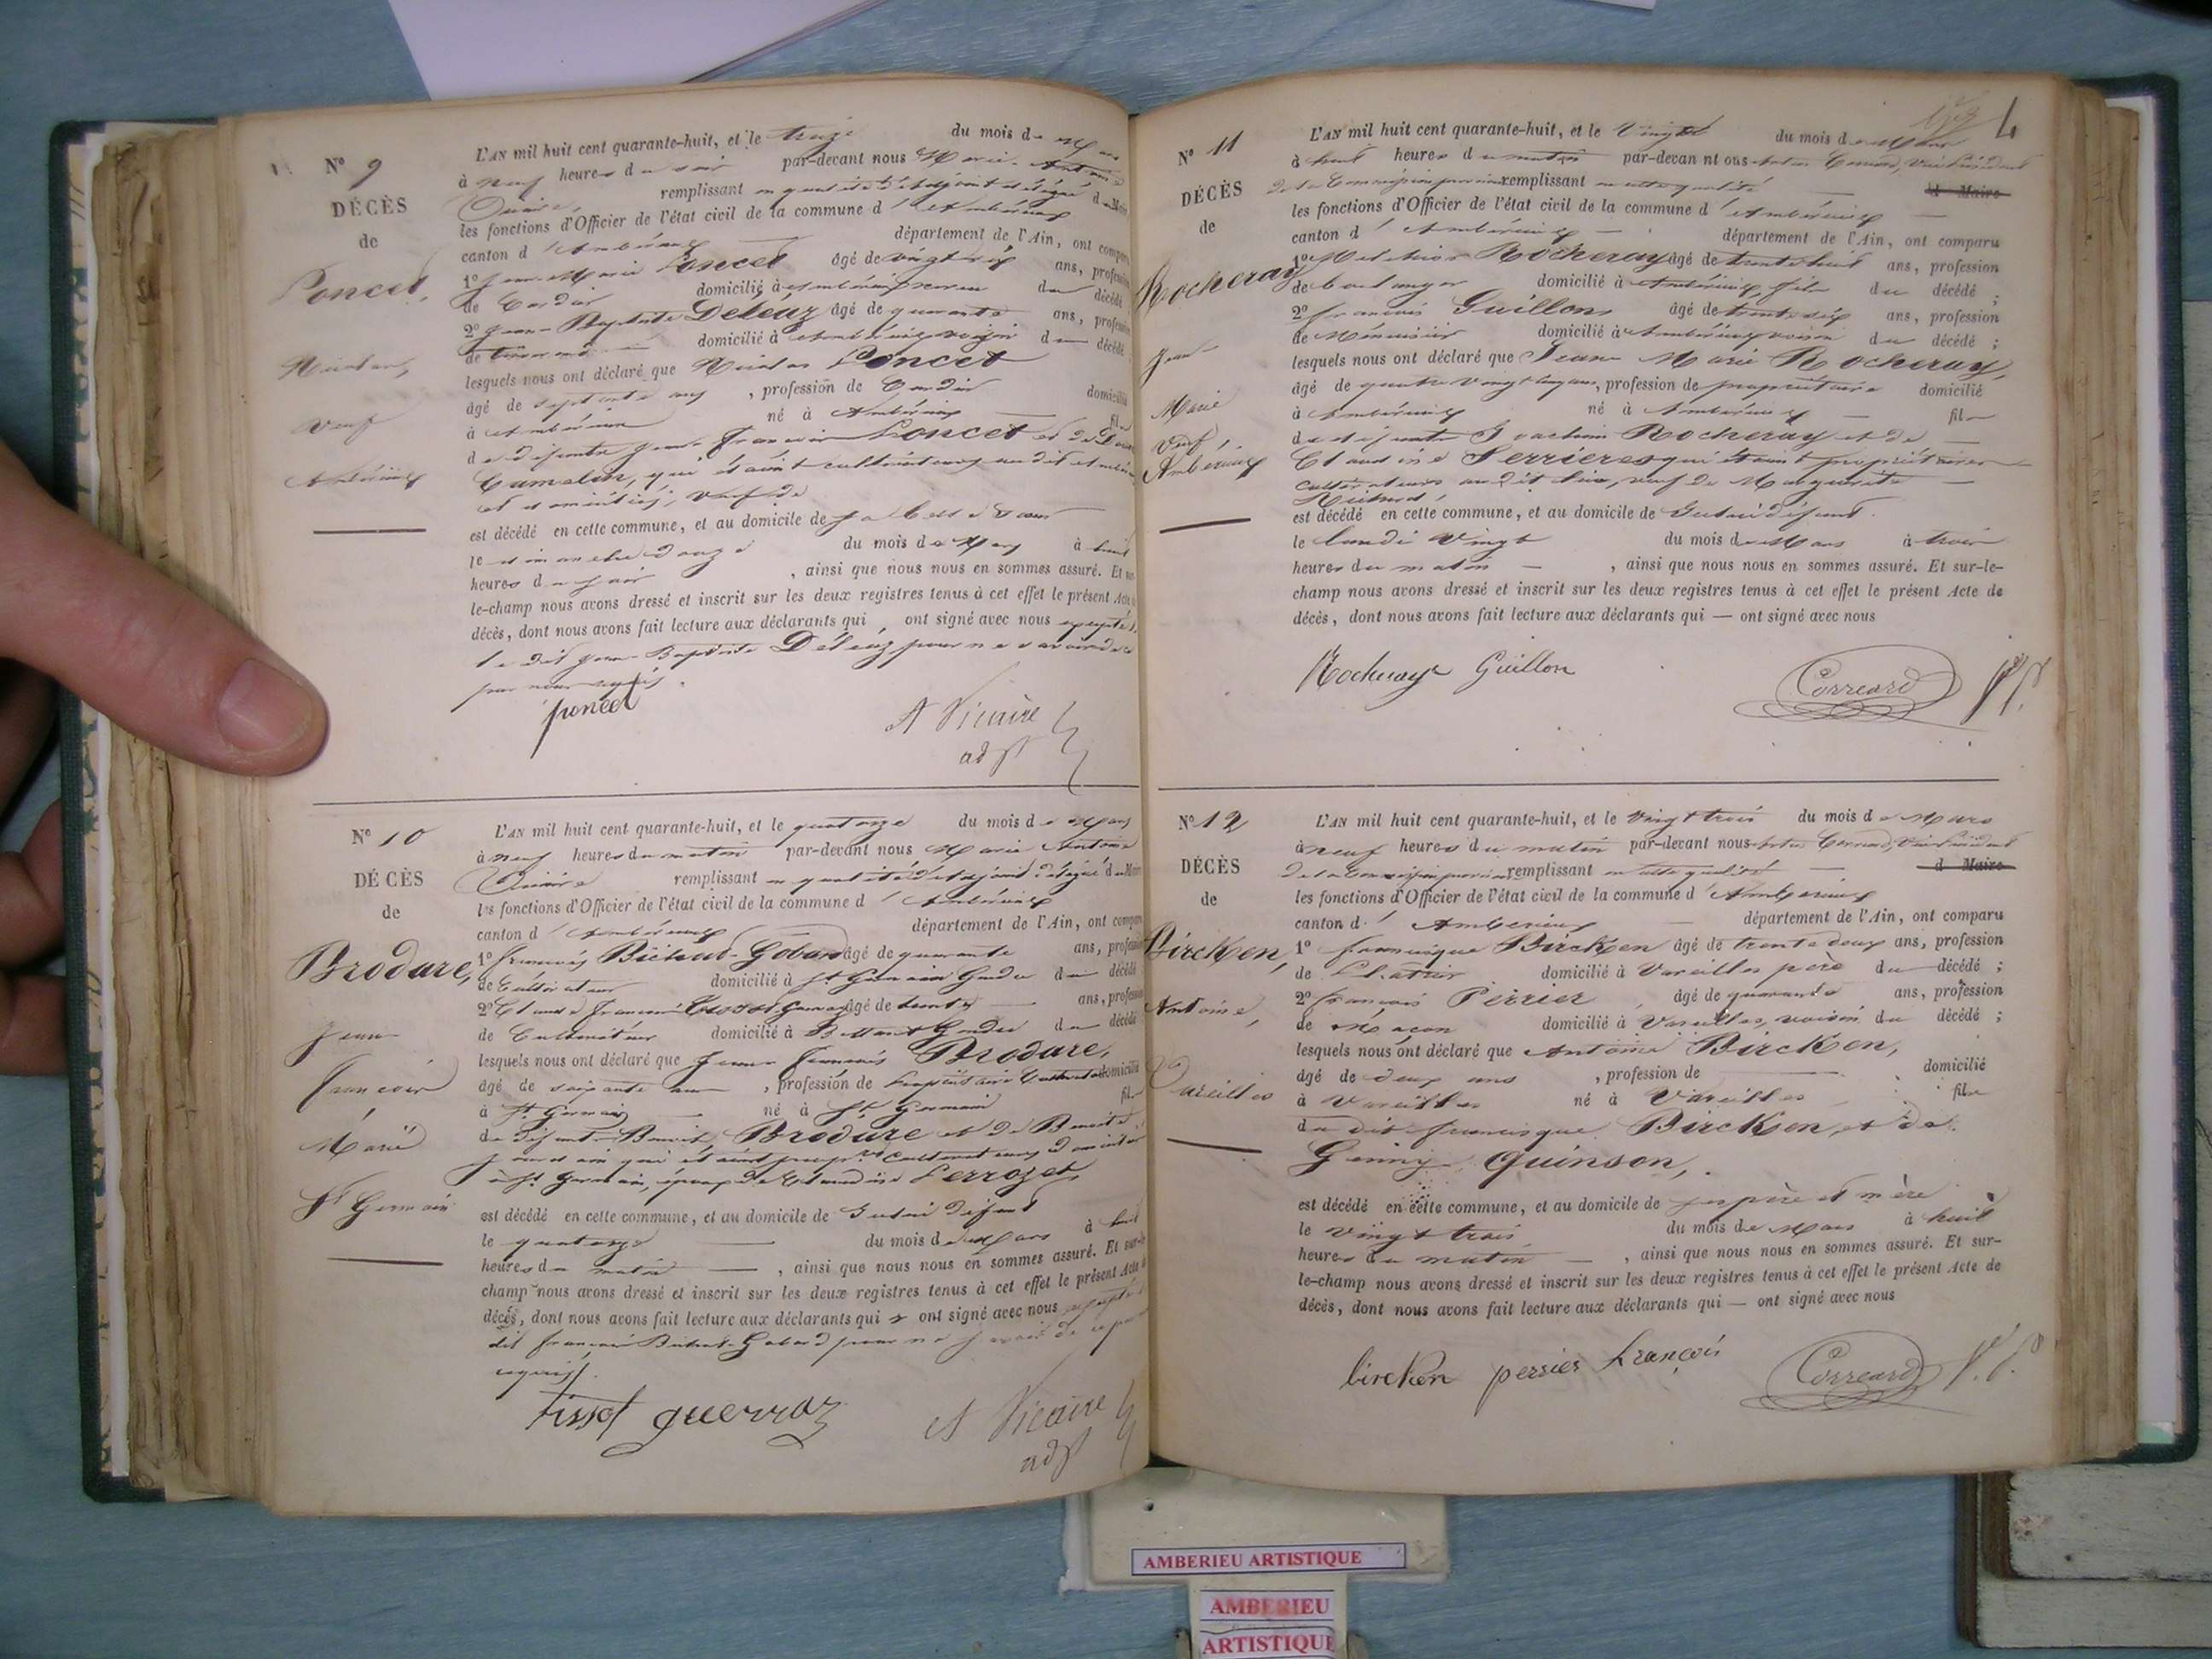 N° 9
DÉCÈS
de
Poncet,
Nicolas,
Veuf
Ambérieux
L'AN mil huit cent quarante-huit, et le treize du mois de Mars
à neuf heures du soir par-devant nous Marie-Antoine
remplissant en qualité d'adjoint délégué du Maire
les fonctions d'Officier de l'état civil de la commune d'Ambérieux
canton d'Ambérieux département de l'Ain, ont comparu
1° Jean-Marie Poncet âgé de vingt six ans, profession
de Cordier domicilié à Ambérieux du décédé
2° Jean-Baptiste Deléaz âgé de quarante ans, profession
de domicilié à Ambérieux voisin du décédé
lesquels nous ont déclaré que Nicolas Poncet
âgé de septante ans, profession de Cordier domicilié
à Ambérieux né à Ambérieux fils
de défunts Jean François Poncet et de
qui étaient cultivateurs audit Ambérieux
et domiciliés; veuf de
est décédé en cette commune, et au domicile de sa belle sœur
le dimanche douze du mois de Mars à huit
heures du soir, ainsi que nous nous en sommes assuré. Et sur-
le-champ nous avons dressé et inscrit sur les deux registres tenus à cet effet le présent Acte de
décès, dont nous avons fait lecture aux déclarants qui ont signé avec nous excepté
le dit Jean Baptiste Deléaz pour ne savoir de ce
par nous requis.
poncet
A Vicaire
adjt
N° 10
DÉCÈS
de
Brodure,
Jean
François
Marie
St Germain
L'AN mil huit cent quarante-huit, et le quatorze du mois de Mars
à neuf heures du matin par-devant nous Marie Antoine
remplissant en qualité d'adjoint délégué du Maire
les fonctions d'Officier de l'état civil de la commune d'Ambérieux
canton d'Ambérieux département de l'Ain, ont comparu
1° François Bichat-Gobard âgé de quarante ans, profession
de Cultivateur domicilié à St Germain Gendre du décédé
2° Claude François Tissot Guerraz âgé de trente ans, profession
de Cultivateur domicilié à Gendre du décédé
lesquels nous ont déclaré que Jean François Brodure,
âgé de soixante ans, profession de Propriétaire Cultivateur domicilié
à St Germain né à St Germain fils
de défunts Benoit Brodure et de Benoite
qui étaient propres cultivateurs domiciliés
à St Germain, époux de Claudine Perrozet
est décédé en cette commune, et au domicile de Gutui défunt
le quatorze du mois de Mars à huit
heures du matin, ainsi que nous nous en sommes assuré. Et sur-le-
champ nous avons dressé et inscrit sur les deux registres tenus à cet effet le présent Acte de
décès, dont nous avons fait lecture aux déclarants qui ont signé avec nous excepté le
dit François Bichat-Gobard pour ne savoir de ce par
requis.
tissot guerraz
A Vicaire
adjt
4
N° 11
DÉCÈS
de
Rocheray
Jean-
Marie
Veuf,
Ambérieux
L'AN mil huit cent quarante-huit, et le Vingt du mois de Mars
à huit heures du matin par-devan nt ous Correard, Vice Président
de la Commission provisoire remplissant en cette qualité d Maire
les fonctions d'Officier de l'état civil de la commune d'Ambérieux
canton d'Ambérieux département de l'Ain, ont comparu
1° Melchior Rocheray âgé de trente huit ans, profession
de boulanger domicilié à Ambérieux, fils du décédé;
2° François Guillon âgé de trente six ans, profession
de Menuisier domicilié à Ambérieux voisin du décédé;
lesquels nous ont déclaré que Jean Marie Rocheray,
âgé de quatre Vingt ans, profession de propriétaire domicilié
à Ambérieux né à Ambérieux fils
de défunts Joachim Rocheray et de
Claudine Ferrières qui étaient propriétaires
cultivateurs audit lieu, veuf de Marguerite
est décédé en cette commune, et au domicile de Gutui défunt.
le lundi Vingt du mois de Mars à trois
heures du matin, ainsi que nous nous en sommes assuré. Et sur-le-
champ nous avons dressé et inscrit sur les deux registres tenus à cet effet le présent Acte de
décès, dont nous avons fait lecture aux déclarants qui — ont signé avec nous
Rocheray Guillon
Correard V.P.
N° 12
DÉCÈS
de
Bircken,
Antoine,
Vareilles
L'AN mil huit cent quarante-huit, et le Vingt trois du mois de Mars
à neuf heures du matin par-devant nous Correard, Vice Président
de la Commission provisoire remplissant en cette qualité d Maire
les fonctions d'Officier de l'état civil de la commune d'Ambérieux
canton d'Ambérieux département de l'Ain, ont comparu
1° Francisque Bircken âgé de trente deux ans, profession
de Plâtrier domicilié à Vareilles père du décédé;
2° François Perrier âgé de quarante ans, profession
de Maçon domicilié à Vareilles, voisin du décédé;
lesquels nous ont déclaré que Antoine Bircken,
âgé de deux ans, profession de domicilié
à Vareilles né à Vareilles fils
du dit francisque Bircken, et de
Genny Quinson,
est décédé en cette commune, et au domicile de ses père et mère
le vingt trois du mois de Mars à huit
heures du matin, ainsi que nous nous en sommes assuré. Et sur-
le-champ nous avons dressé et inscrit sur les deux registres tenus à cet effet le présent Acte de
décès, dont nous avons fait lecture aux déclarants qui — ont signé avec nous
bircken perrier françois
Correard V.P.
AMBERIEU ARTISTIQUE
AMBERIEU
ARTISTIQUE